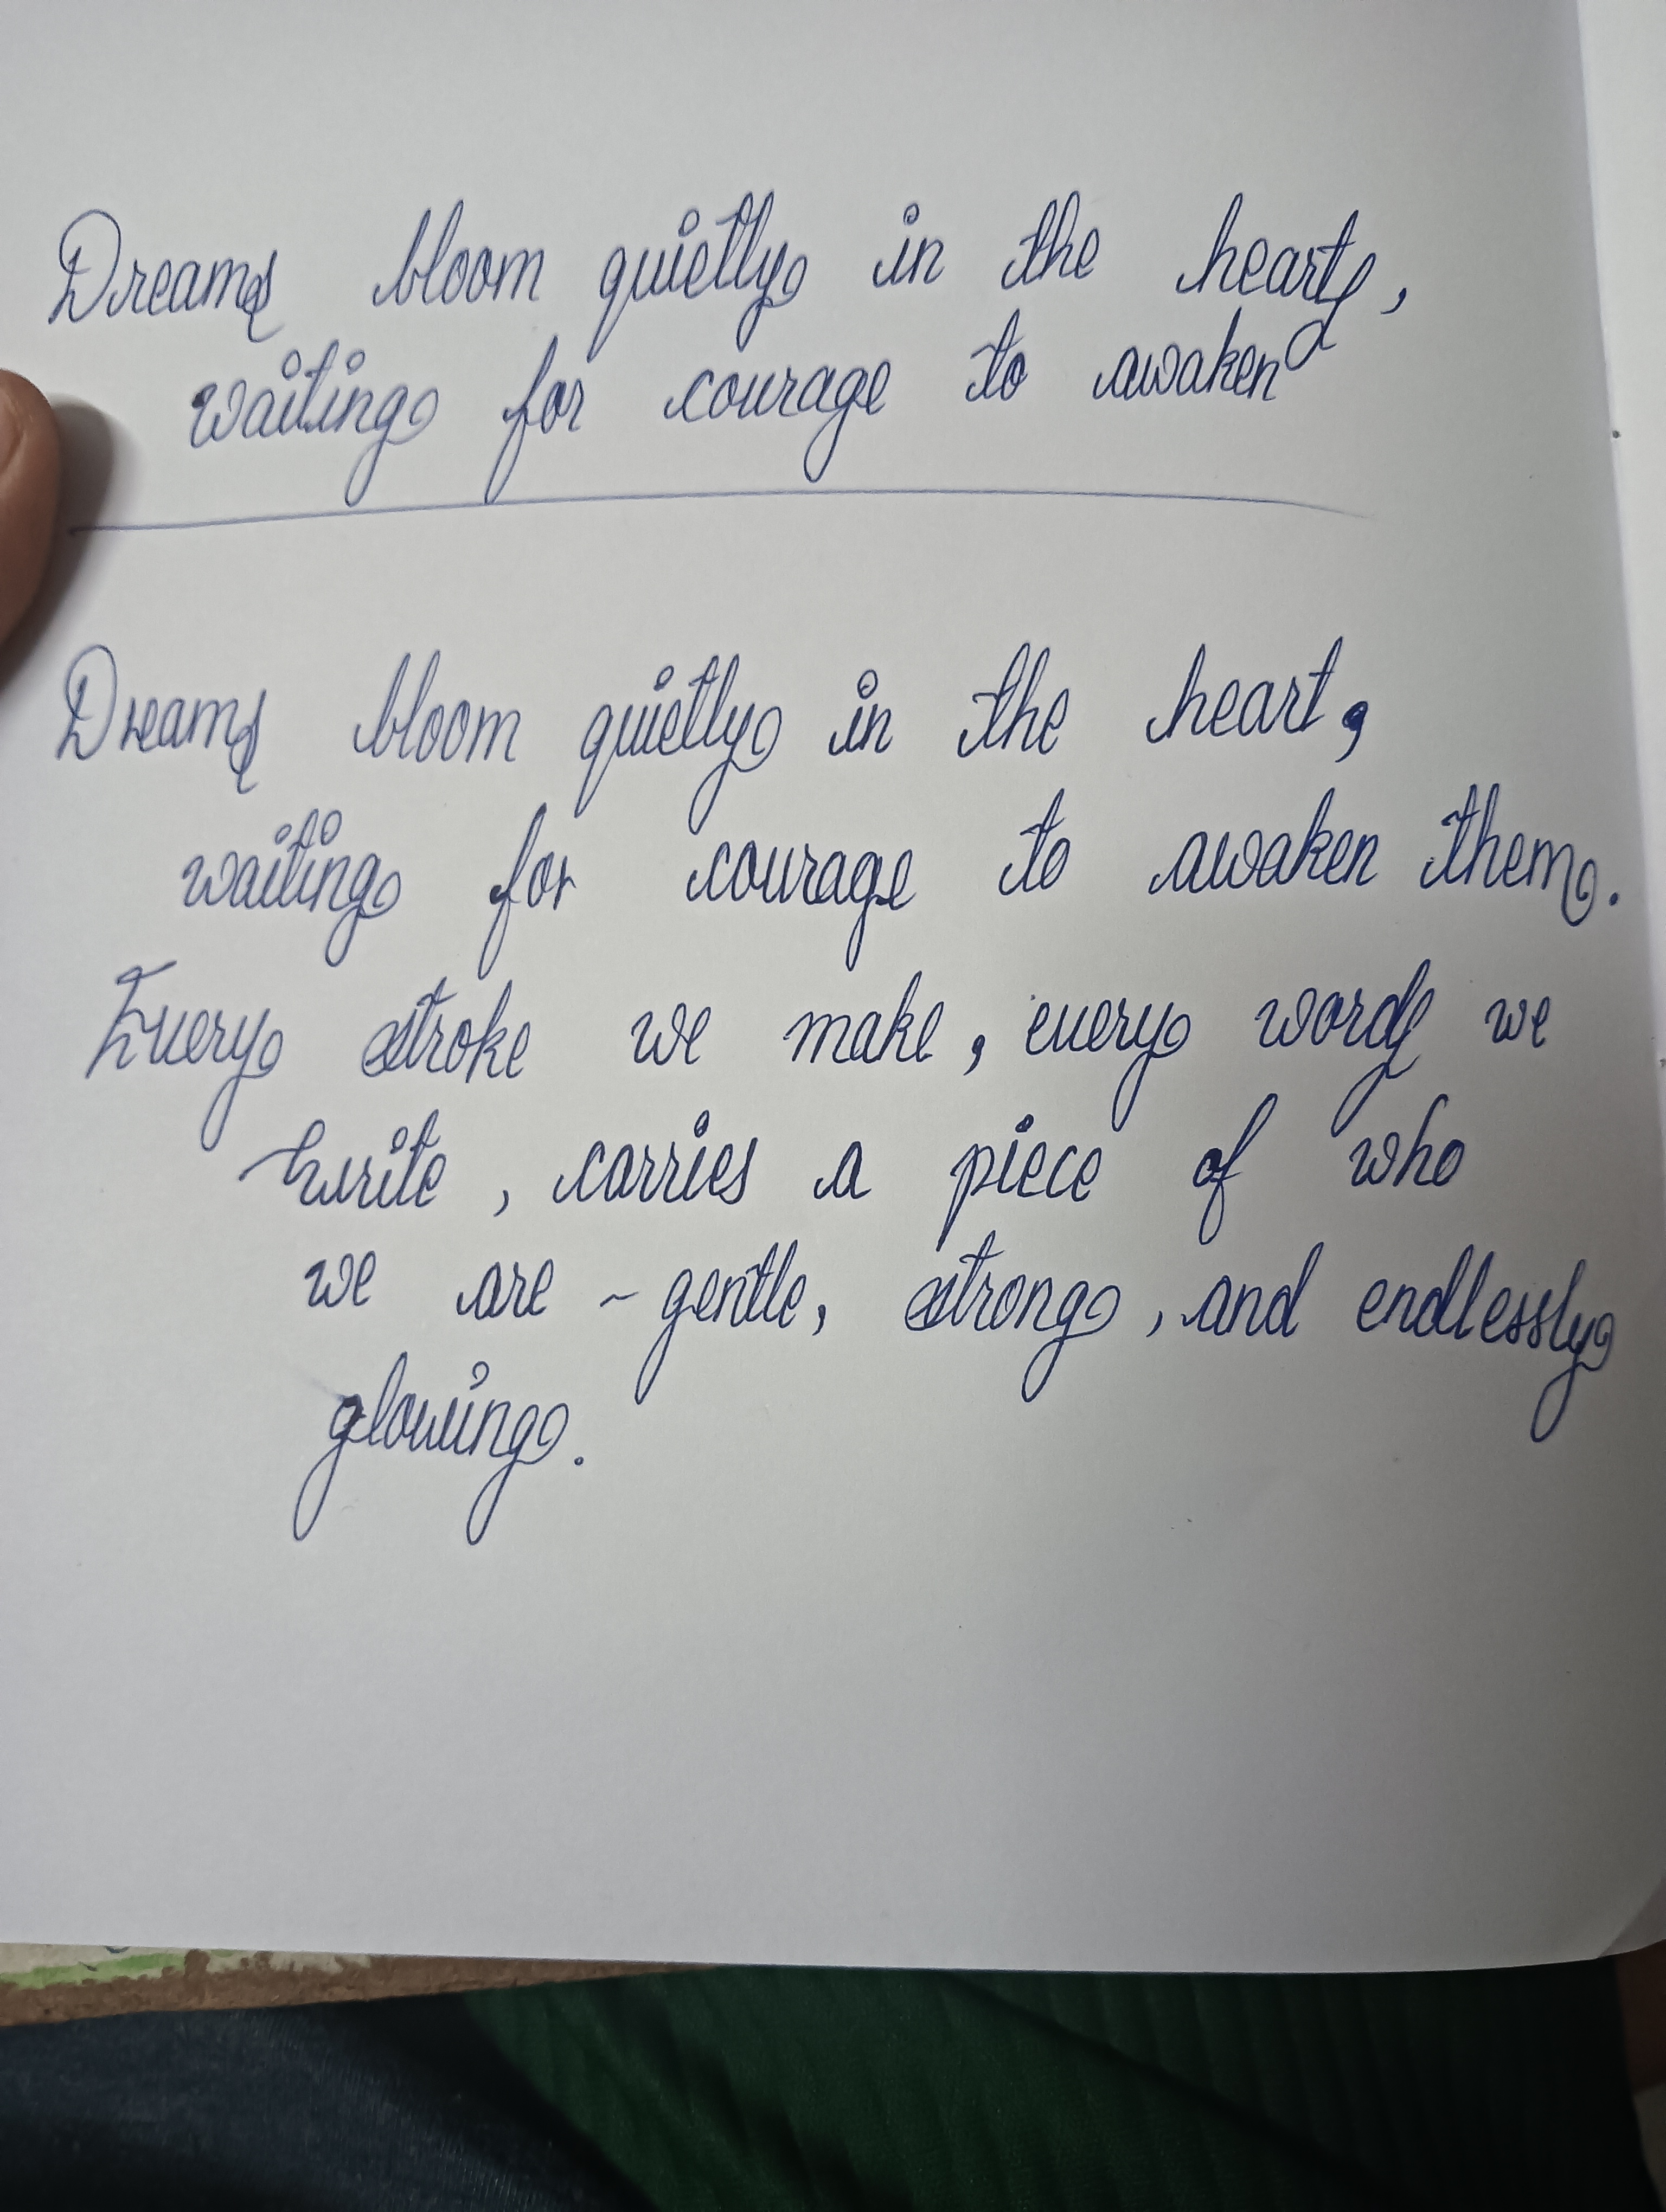 Dreams bloom quietly in the heart,
waiting for courage to awaken
Dreams bloom quietly in the heart,
waiting for courage to awaken them.
Every stroke we make, every word we
write, carries a piece of who
we are - gentle, strong, and endlessly
glowing.